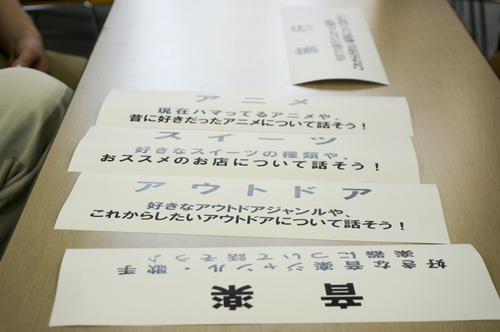 アニメ
現在ハマってるアニメや、
昔に好きだったアニメについて話そう！
スイーツ
好きなスイーツの種類や、
おススメのお店について話そう！
アウトドア
好きなアウトドアジャンルや、
これからしたいアウトドアについて話そう！
音楽
好きな音楽ジャンル・歌手
楽器について話そう♪